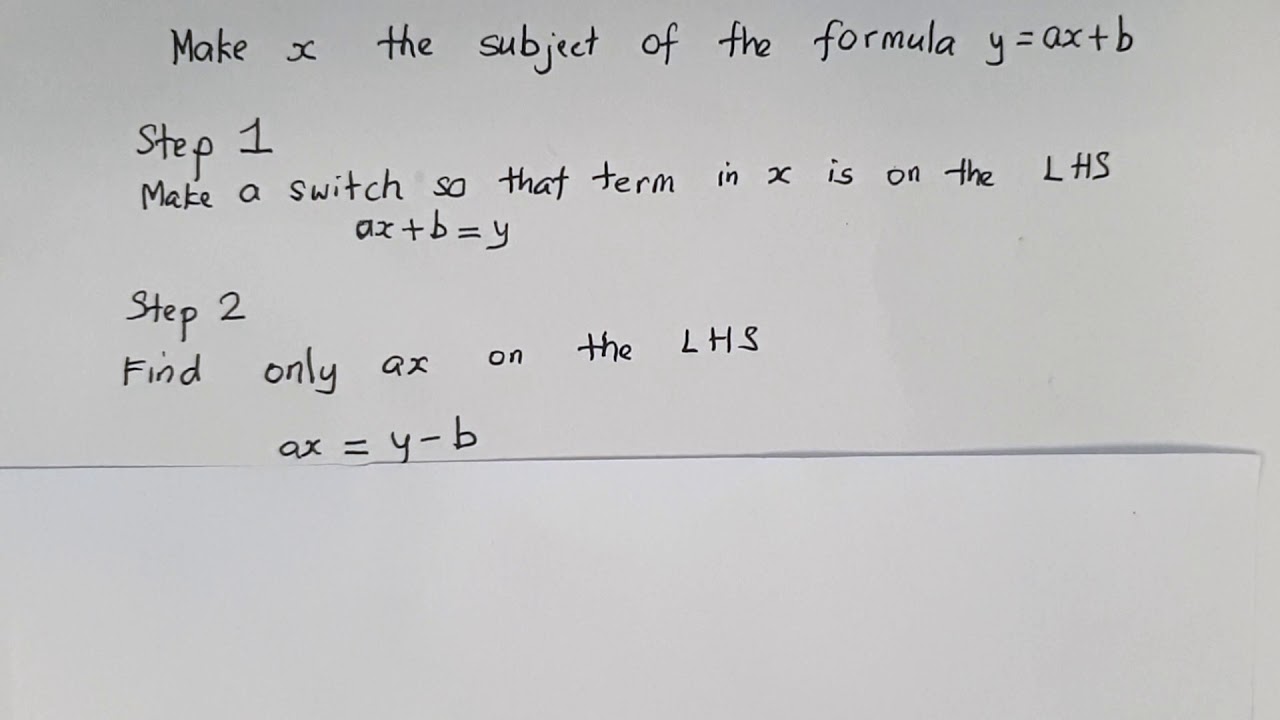 Make x the subject of the formula y = ax + b
Step 1
Make a switch so that term in x is on the LHS
ax + b = y
Step 2
Find only ax on the LHS
ax = y - b